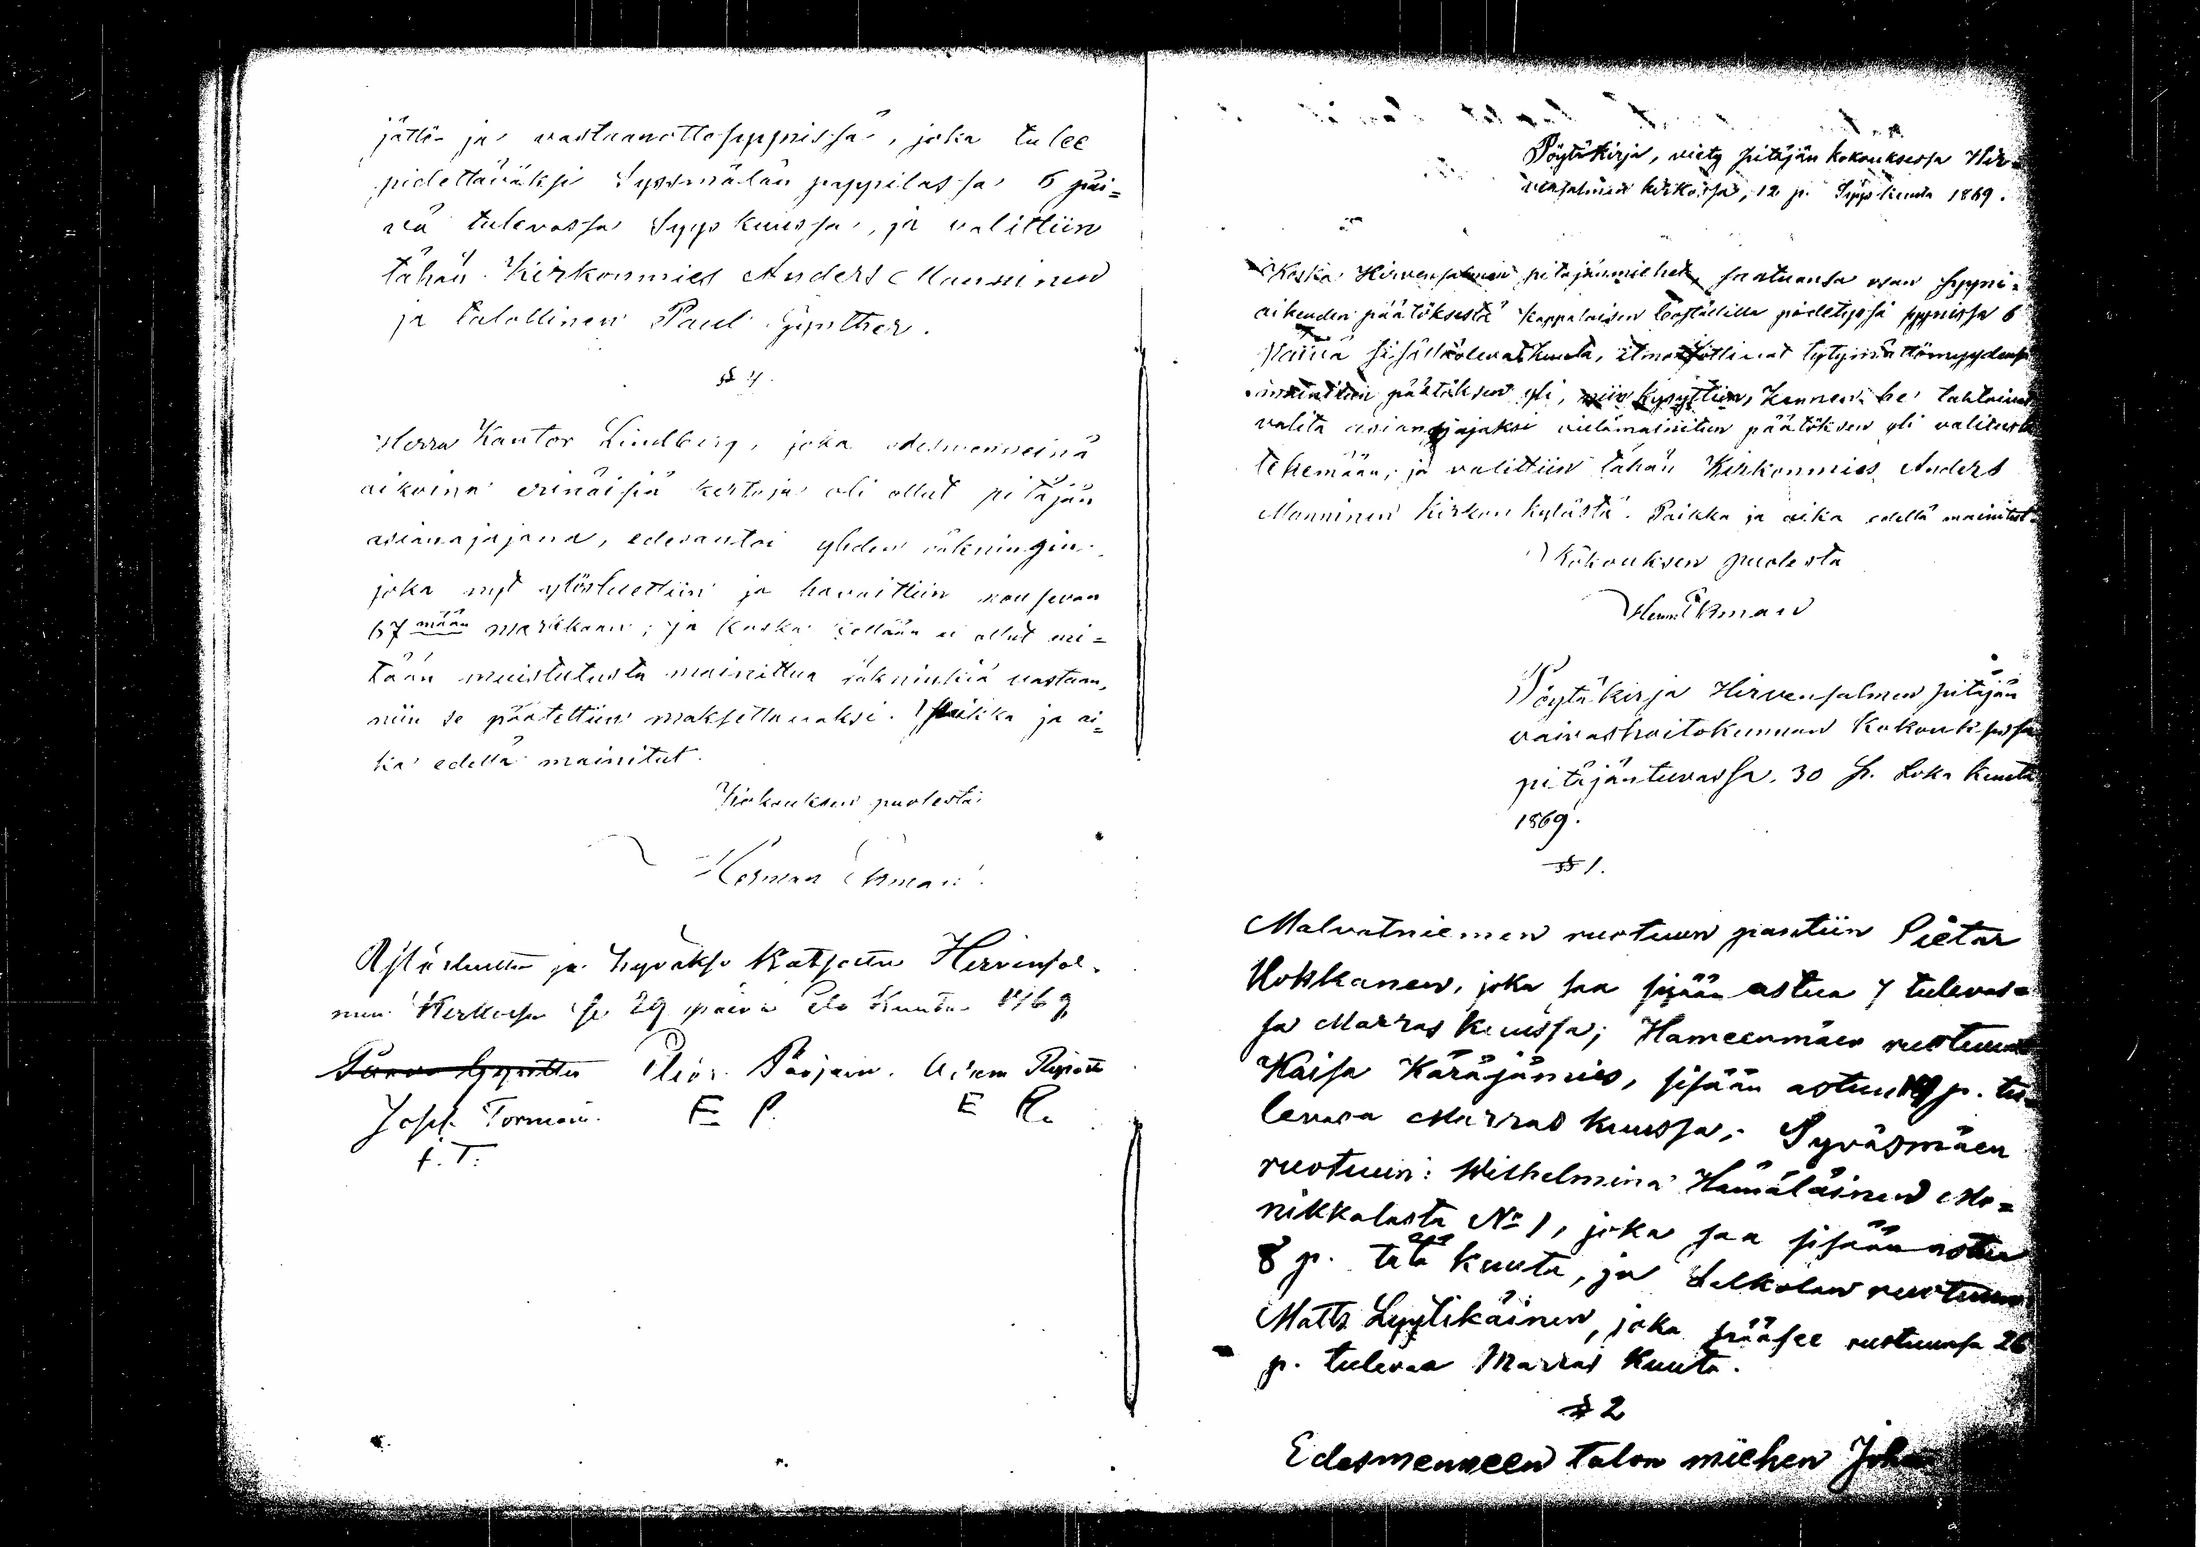 jättö ja vastaanottosyynissä, joka tulee
pidettäväksi Syssmälän pappilassa 6 päi=
vä tulevassa Syyskuussa, ja valittiin
tähän Kirkonmies Anders Manninen
ja talollinen Paul Gynther.
§ 4.
Herra Kantor Lindberg, joka edesmenneinä
aikoina erinäisiä kertoja oli ollut pitäjän
asianajajana, edesantoi yhden räkningin
joka nyt ylösluettiin ja havaittiin nousevan
67 mään markkaan; ja koska kellään ei ollut mi=
tään muistutusta mainittua räkninkiä vastaan,
niin se päätettiin maksettavaksi. Paikka ja ai=
ka edellä mainitut.
Kokouksen puolesta
Herman Ekman.
Ylösluettu ja hyväksi katsottu Hirvensal=
men Kirkossa se 29 päivä Elo Kuuta 1869
Paavo Gyntter Elias Parjain. Adam
Josef Torman. E P. E R.
f. T.
Pöytäkirja, viety pitäjän kokouksessa Hir=
vensalmen kirkossa, 12 p. Syys kuuta 1869.
Koska Hirvensalmen pitäjänmiehet, saatuansa osan syyni=
oikeuden päätöksestä Kappalaisen Boställilla pidetyssä syynissä 6
päivä sisälläolevat kuuta, ilmoittivat tytymättömyydensä
mainitun päätöksen yli, niin kysyttiin, kennen he tahtoivat
valita asianajajaksi vielämainitun päätöksen yli valitusta
tekemään; ja valittiin tähän Kirkonmies Anders
Manninen Kirkon kylästä. Paikka ja aika edellä mainitut.
Kokouksen puolesta
Herm. Ekman
Pöytäkirja Hirvensalmen pitäjän
vaivashoitokunnan Kokouksessa
pitäjäntuvassa, 30 p. Loka kuuta
1869.
§ 1.
Malvatniemen ruotuun pantiin Pietar
Kokkanen, joka saa sisään astua 7 tulevas=
sa Marras kuussa; Hameenmäen ruotuun
Kaisa Käräjämies, sisään astuu 19 p. tu=
levasa Marras kuussa; Syväsmäen
ruotuun: Wilhelmina Hämäläinen Mo=
nikkalasta No 1, joka saa sisään astua
8 p. tätä kuuta, ja Lelkolan ruotuun
Matts Lyytikäinen, joka pääsee ruotuunsa 26
p. tulevaa Marras kuuta.
§ 2
Edesmenneen talon miehen Joha